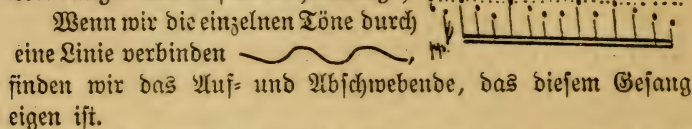 Wenn wir die einzelnen Töne durch
eine Linie verbinden
finden wir das Auf- und Abschwebende, das diesem Gesang
eigen ist.